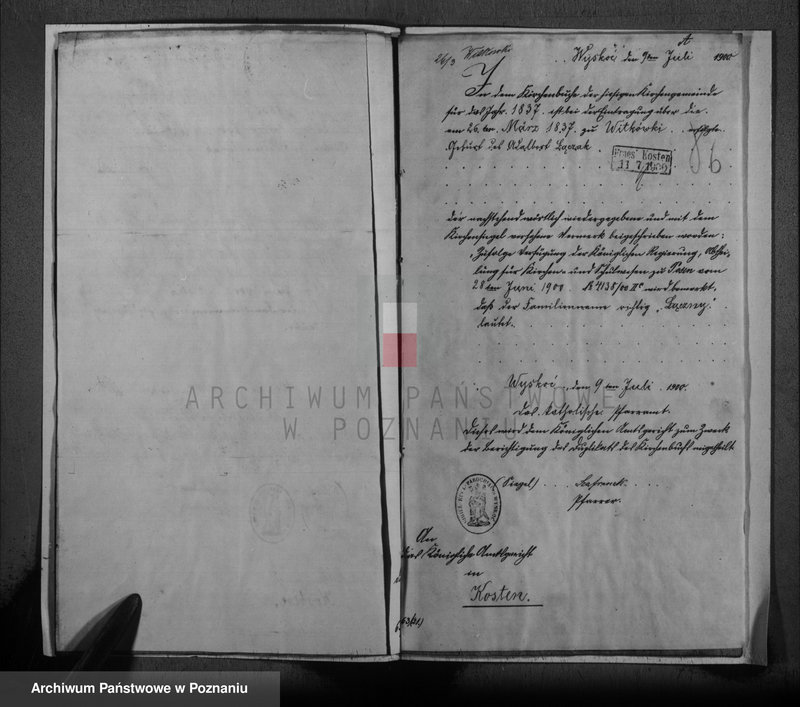 26/3 Witkowki
A
Wyskoć den 9ten Juli 1900
In dem Kirchenbuche der hiesigen Kirchengemeinde
für das Jahr 1837. ist bei der Eintragung über die
am 26.ten März 1837. zu Witkówki erfolgte
Geburt des Adalbert Łączak
Praes. Kosten
11 7 1900
der nachstehend wörtlich wiedergegebene und mit dem
Kirchensiegel versehene Vermerk beigeschrieben worden:
"Zufolge Verfügung der Königlichen Regierung, Abthei-
lung für Kirchen- und Schulwesen zu Posen vom
28ten Juni 1900. № 4138/00 IIc wird bemerkt,
daß der Familienname richtig "Łączny"
lautet.
Wyskoć, den 9ten Juli 1900.
Das katholische Pfarramt.
Dieses wird dem Königlichen Amtsgericht zum Zweck
der Berichtigung des Duplikats des Kirchenbuchs mitgetheilt
(Siegel)
Pfarrer.
An
das Königliche Amtsgericht
in
Kosten.
ARCHIWUM PAŃSTWOWE
W POZNANIU
Archiwum Państwowe w Poznaniu